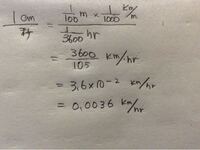 1 cm / = 1/100 m × 1/1000 km/m / 1/3600 hr
= 3600/10⁵ km/hr
= 3,6×10⁻² km/hr
= 0,0036 km/hr